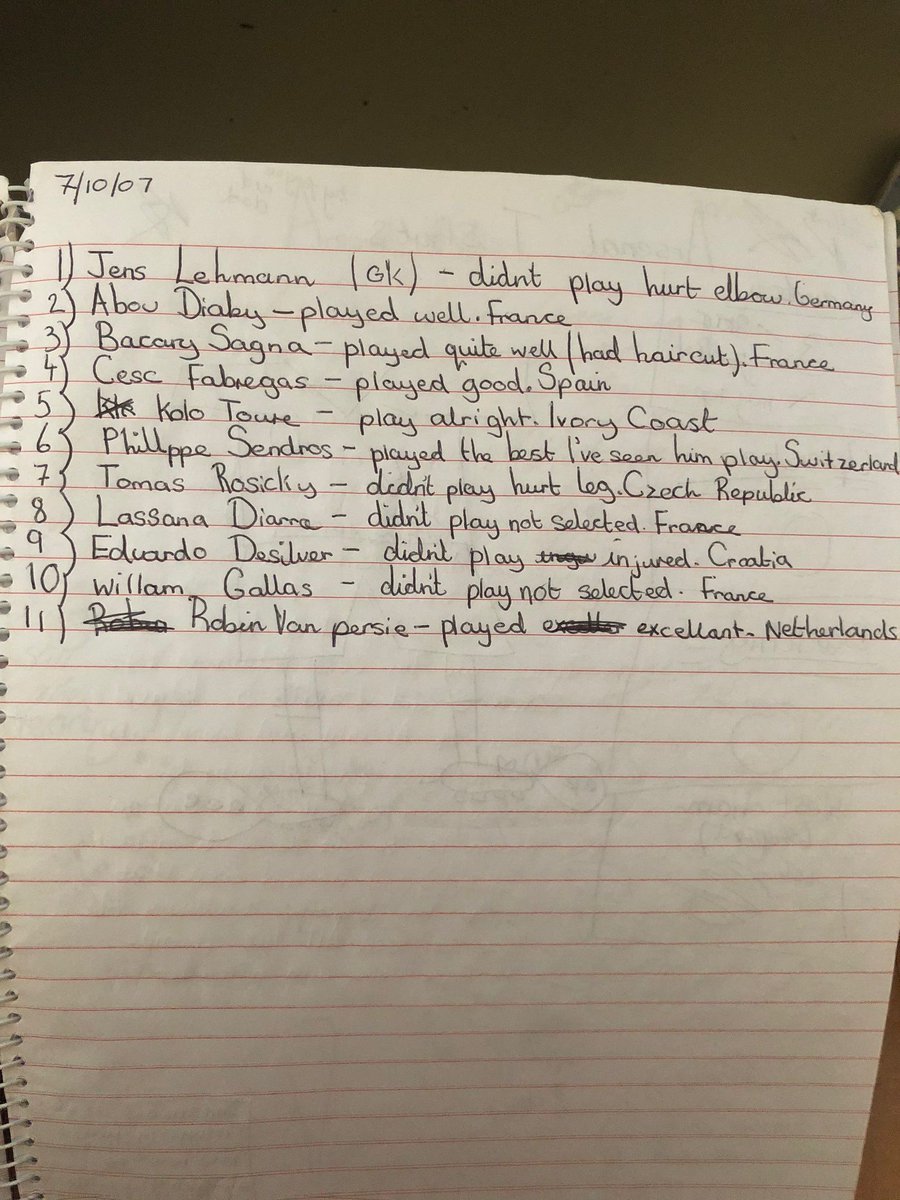 7/10/07
1) Jens Lehmann (GK) - didnt play hurt elbow. Germany
2) Abou Diaby - played well. France
3) Bacary Sagna - played quite well (had haircut). France
4) Cesc Fabregas - played good. Spain
5) Kolo Toure - play alright. Ivory Coast
6) Phillppe Sendros - played the best I've seen him play. Switzerland
7) Tomas Rosicky - didn't play hurt leg. Czech Republic
8) Lassana Diarra - didn't play not selected. France
9) Eduardo Desilver - didn't play injured. Croatia
10) Willam Gallas - didn't play not selected. France
11) Robin Van persie - played excellant. Netherlands